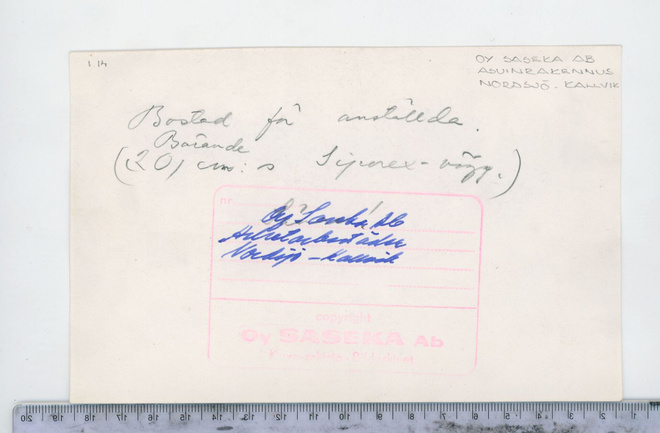 1.14
OY SASEKA AB
ASUINRAKENNUS
NORDSJÖ. KALLVIK
Bostad för anställda.
Bärande
(20 cm:s Siporex-vägg.)
nr
Oy Saseka Ab
Arbetarbostäder
Nordsjö - Kallvik
copyright
Oy SASEKA Ab
20 19 18 17 16 15 14 13 12 11 10 9 8 7 6 5 4 3 2 1